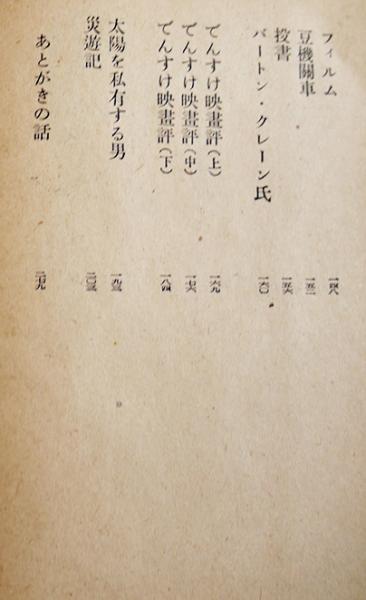 フィルム 一四八
豆機關車 一五二
投書 一五六
バートン・クレーン氏 一六〇
でんすけ映畫評(上) 一六九
でんすけ映畫評(中) 一七六
でんすけ映畫評(下) 一八四
太陽を私有する男 一九三
災遊記 二〇三
あとがきの話 二一九